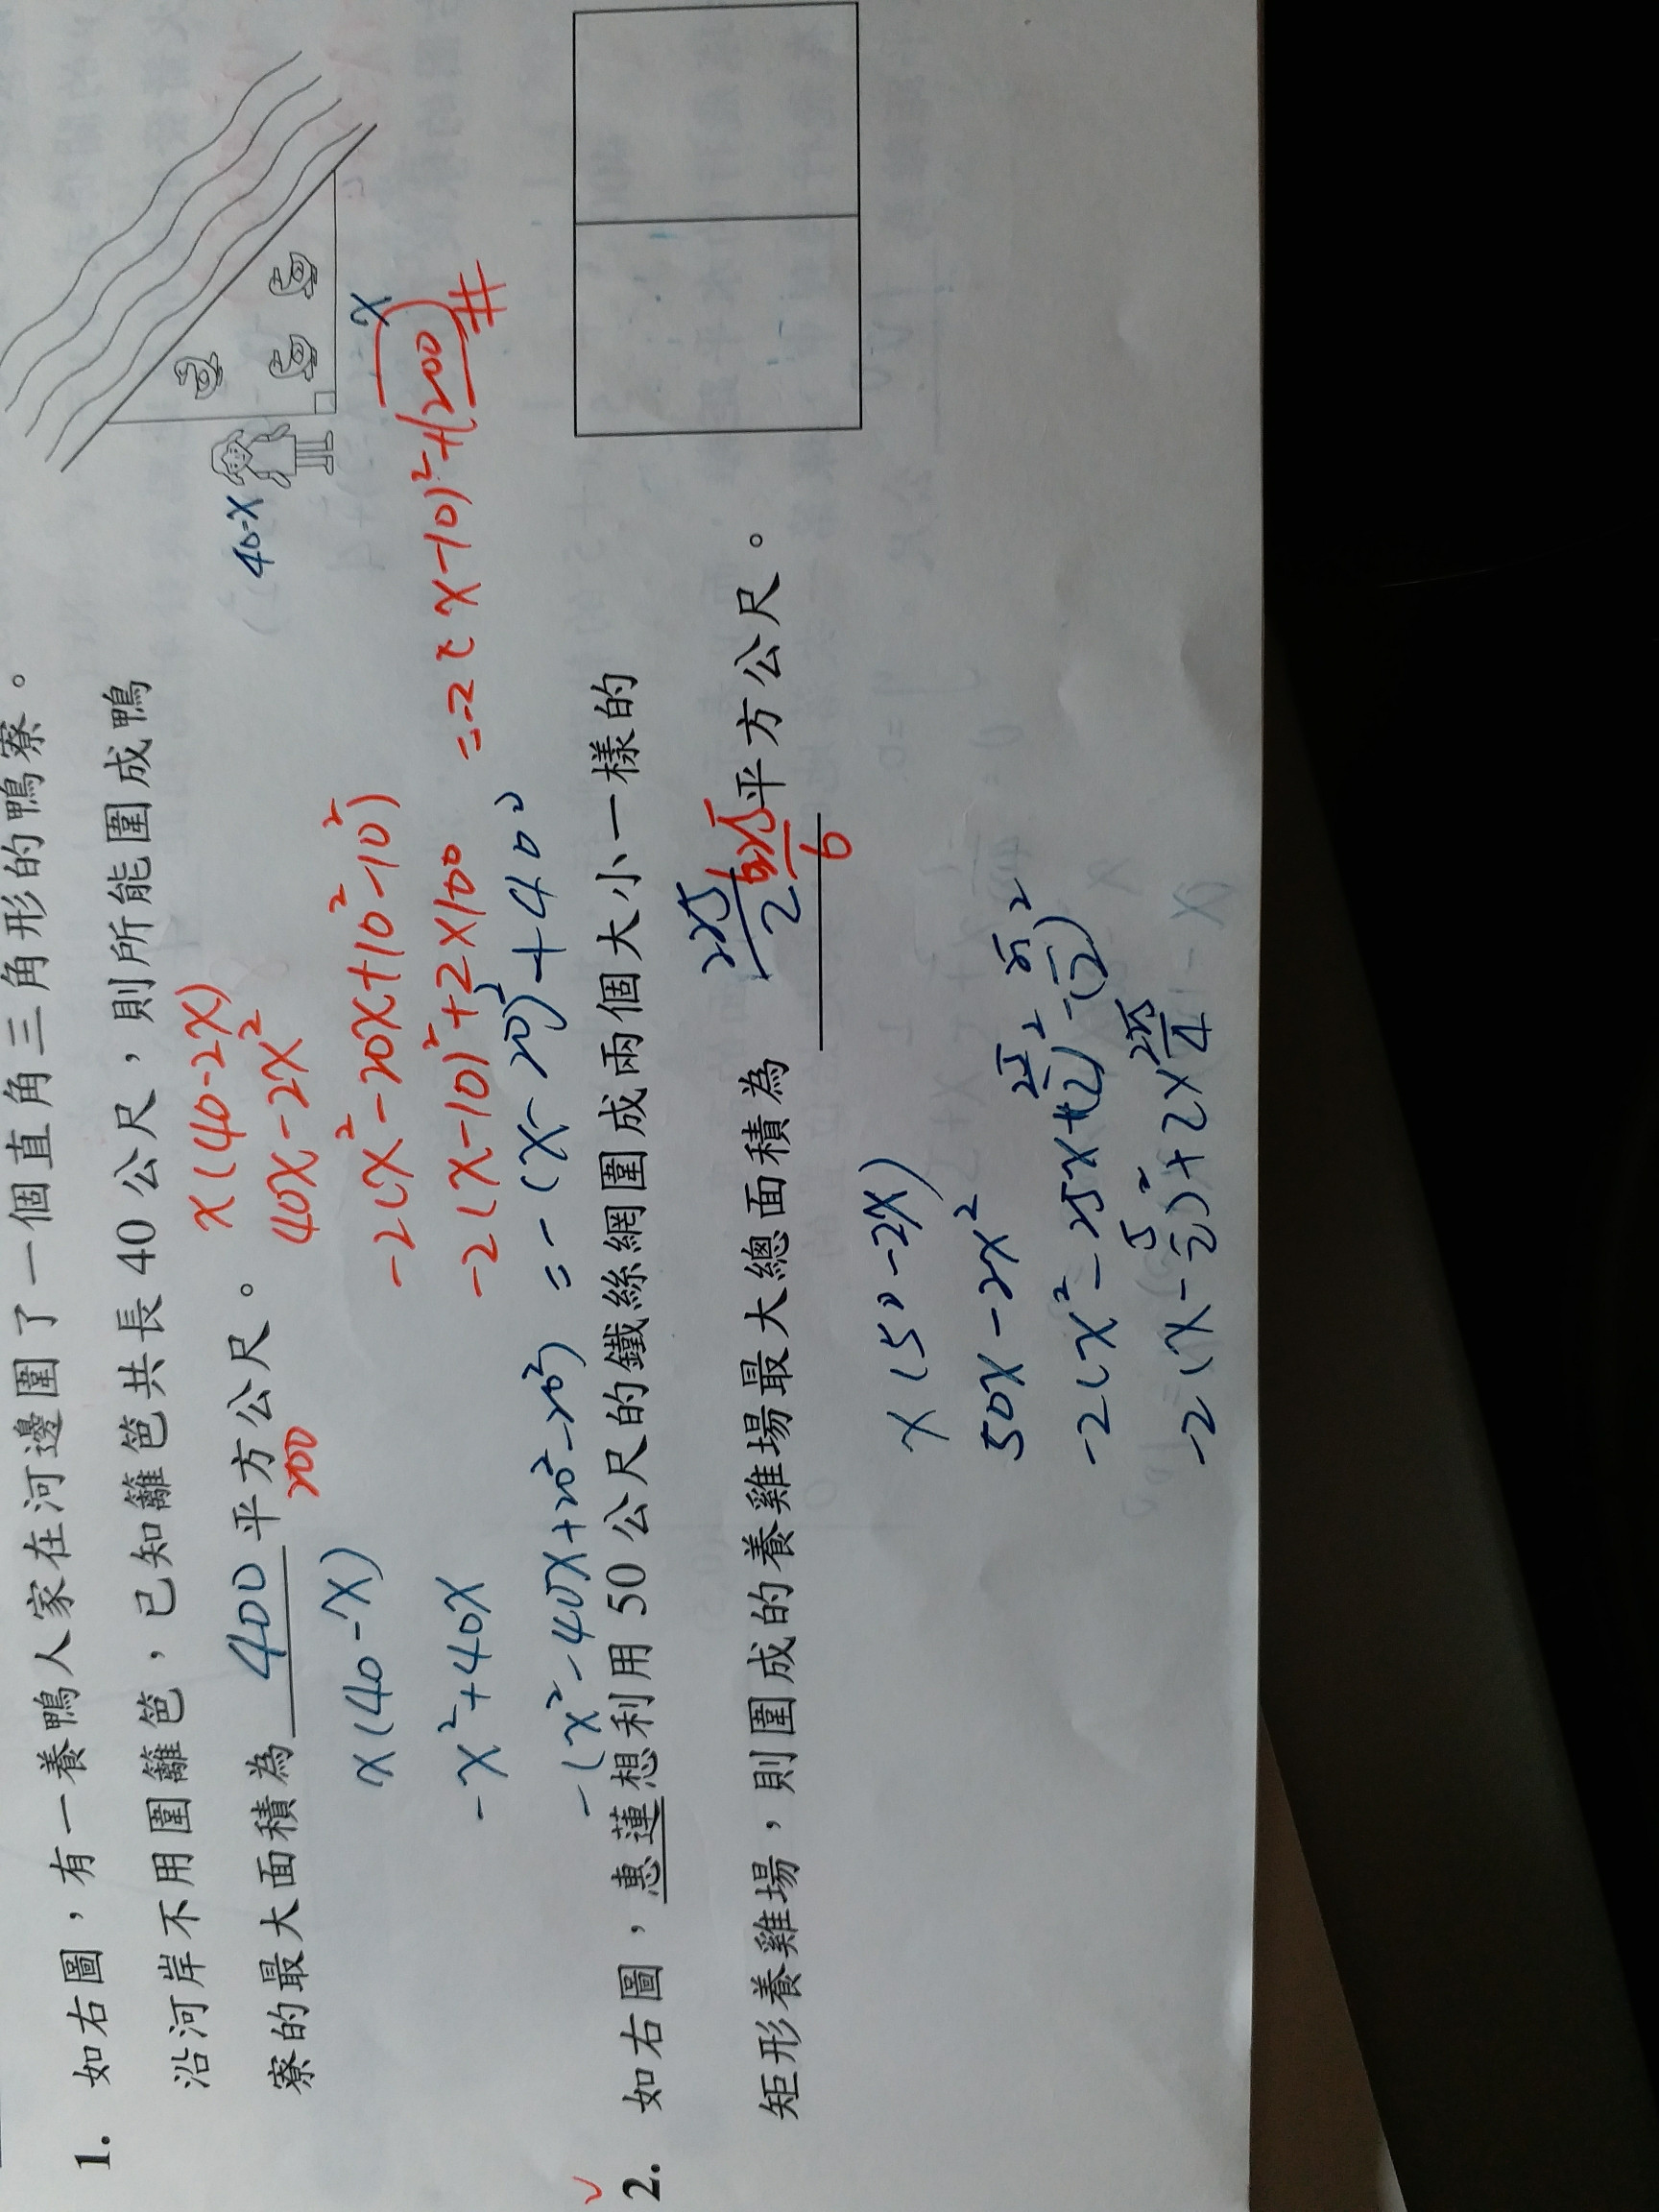 1. 如右圖，有一養鴨人家在河邊圍了一個直角三角形的鴨寮。
沿河岸不用圍籬笆，已知籬笆共長 40 公尺，則所能圍成鴨
寮的最大面積為 400 平方公尺。
200
40-x
x
x(40-x)
-x²+40x
-(x²-40x+20²-20²) =-(x-20)²+400
x(40-2x)
40x-2x²
-2(x²-20x+10²-10²)
-2(x-10)²+2×100 =-2(x-10)²+(200)
#
2. 如右圖，惠蓮想利用 50 公尺的鐵絲網圍成兩個大小一樣的
矩形養雞場，則圍成的養雞場最大總面積為 225/2 625/6 平方公尺。
x(50-2x)
50x-2x²